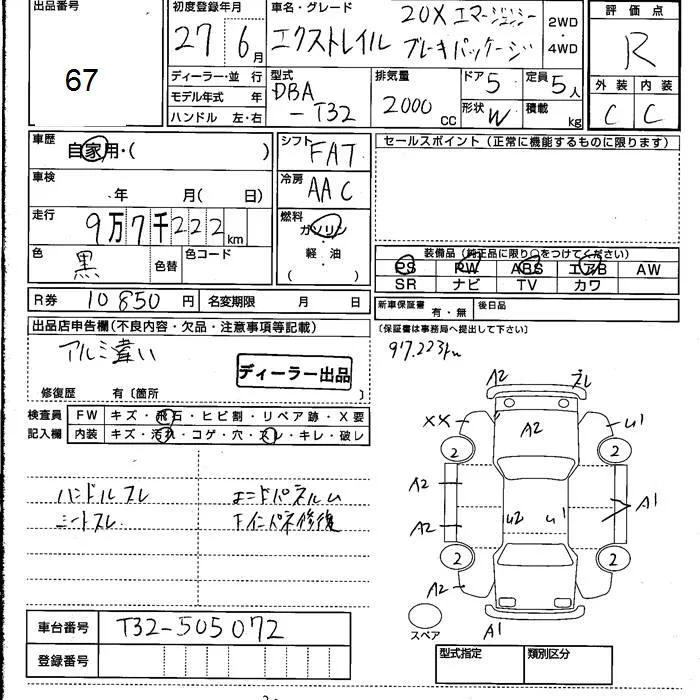 出品番号
67
初度登録年月
27 6月
車名・グレード
20X エマージェンシー
エクストレイル ブレーキパッケージ
2WD
・
4WD
ディーラー・並 行
モデル年式 年
ハンドル 左・右
型式
DBA
-T32
排気量
2000 cc
ドア 5
定員 5人
形状 W
積載 kg
評価点
R
外装 内装
C C
車歴
自家用・( )
車検
年 月( 日)
走行
9万7千222km
色 黒 色替
色コード
シフト
FAT
冷房
AAC
燃料
ガソリン
・
軽 油
( )
R券 10850円 名変期限 月 日
セールスポイント(正常に機能するものに限ります)
装備品(純正品に限り○をつけてください)
PS PW ABS エアB AW
SR ナビ TV カワ
新車保証書 有・無 後日品
(保証書は事務局へ提出して下さい)
97.223km
出品店申告欄(不良内容・欠品・注意事項等記載)
アルミ違い
ディーラー出品
修復歴 有〔箇所 〕
検査員
記入欄
FW キズ・飛石・ヒビ割・リペア跡・X要
内装 キズ・汚れ・コゲ・穴・スレ・キレ・破レ
ハンドルスレ
シートスレ
エンドパネルム
下インパネ修復
A2
XX
A2
U1
2
2
A2
A1
A2
U2
U1
2
2
A2
A1
スペア
車台番号 T32-505072
登録番号
型式指定 類別区分